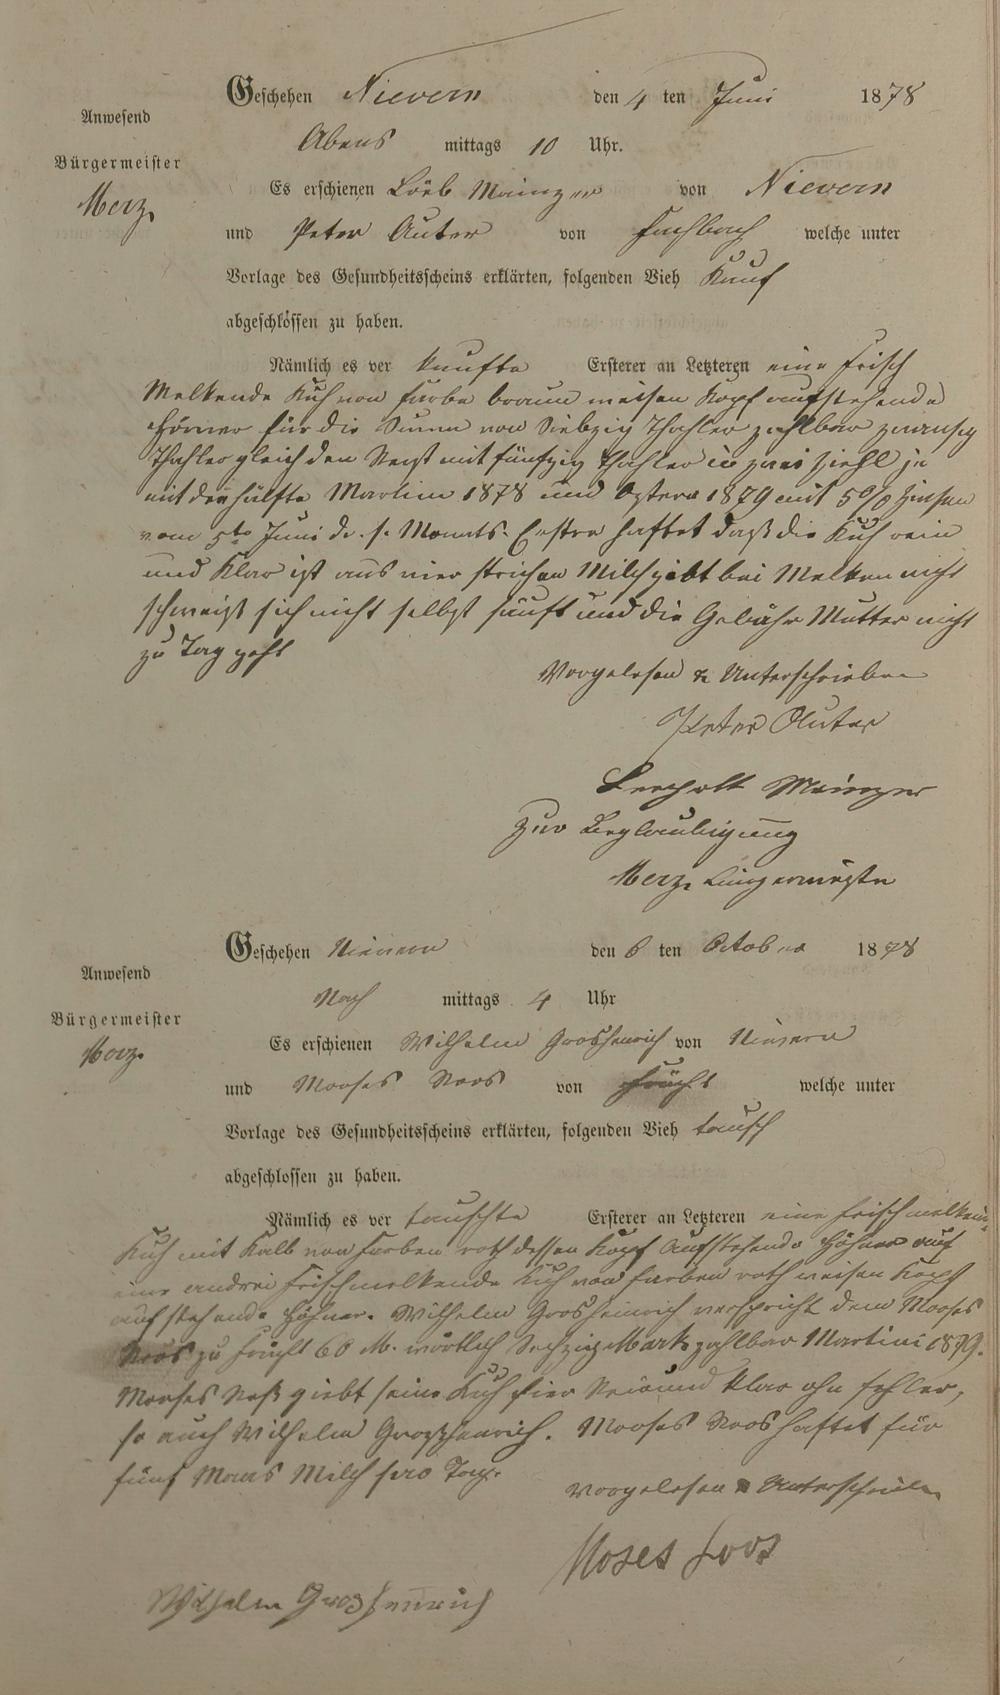 Geschehen Nievern den 4 ten Juni 1878
Anwesend
Abens mittags 10 Uhr.
Bürgermeister
Es erschienen Löeb Mainzer von Nievern
Merz.
und Peter Auter von Fachbach welche unter
Vorlage des Gesundheitsscheins erklärten, folgenden Vieh Kauf
abgeschlossen zu haben.
Nämlich es ver kaufte Ersterer an Letzteren eine frisch
Melkende Kuh von farbe braun weisen Kopf aufstehende
Hörner für die Summ von Siebzig Thahler zahlbar zwanzig
Thahler gleich den Rest mit fünfzig Thahler in zwei Ziehl je
mit der hälfte Martini 1878 und Ostern 1879 mit 5% Zinsen
vom 5te Juni d. s. Monats. Erstre haftet daß die Kuh rein
und Klar ist aus vier strichen Milch giebt bei Melken nicht
schmeißt sich nicht selbst säuft und die Gebähr Mutter nicht
zu Tag geht
Vorgelesen & Unterschrieben
Peter Auter
Mainzer
Zur Beglaubigung
Merz, Bürgermeister
Geschehen Nievern den 6 ten October 1878
Anwesend
Nach mittags 4 Uhr
Bürgermeister
Es erschienen Wilhelm Grosheinrich von Nievern
Merz.
und Mooses Roos von Frücht welche unter
Vorlage des Gesundheitsscheins erklärten, folgenden Vieh tausch
abgeschlossen zu haben.
Nämlich es ver tauschte Ersterer an Letzteren eine frischmelkende
Kuh mit Kalb von farben roth dessen Kopf Aufstehende Höhner auf
eine andrei frischmelkende Kuh von farben roth weisen Kopf
aufstehende Höhner. Wilhelm Grosheinrich verspricht dem Mooses
Roos zu Frücht 60 M. wörtlich Sechzig Mark zahlbar Martini 1879.
Mooses Roß giebt seine Kuh hier Rein und Klar ohn fehler,
so auch Wilhelm Großheinrich. Mooses Roos haftet für
fünf Maas Milch pro Tag.
Vorgelesen & Unterschrieben
Moses Loos
Wilhelm Grosheinrich